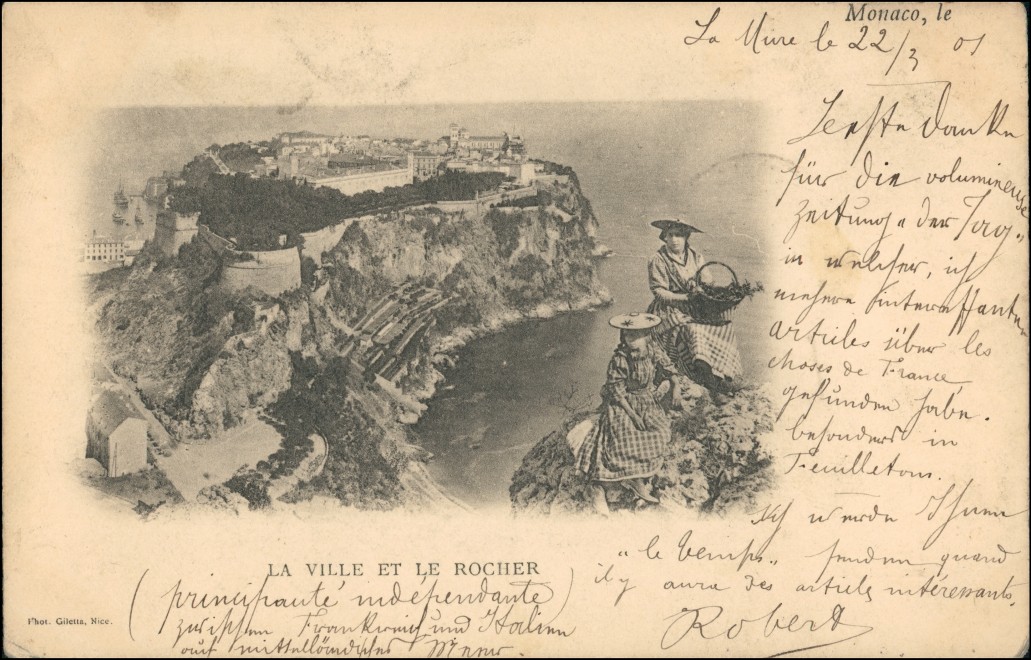 Monaco, le
La Mure le 22/3 01
Danke
für die volumineuse
Zeitung „der Tag"
in welcher, ich
mehere interessante
articles über les
choses de France
gefunden habe.
besonders in
Feuilletons.
Ich werde Ihnen
"le Temps" senden quand
il y aura des articles intéressants.
Robert
LA VILLE ET LE ROCHER
(principauté indépendante)
zwischen Frankreich und Italien
auf mittelländisches Meer.
Phot. Giletta, Nice.